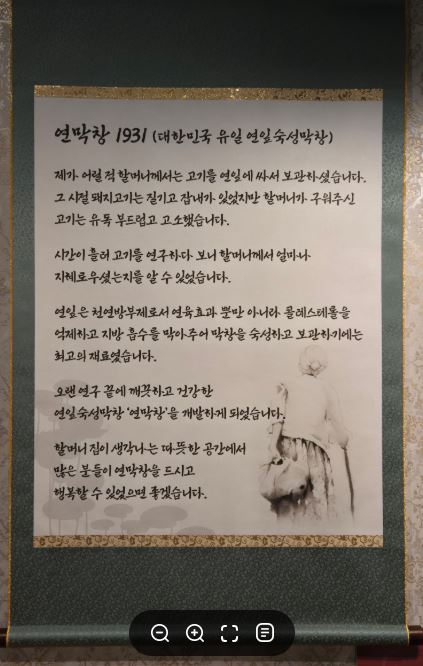 연막창 1931 (대한민국 유일 연잎숙성막창)
제가 어릴 적 할머니께서는 고기를 연잎에 싸서 보관하셨습니다.
그 시절 돼지고기는 질기고 잡내가 있었지만 할머니가 구워주신
고기는 유독 부드럽고 고소했습니다.
시간이 흘러 고기를 연구하다 보니 할머니께서 얼마나
지혜로우셨는지를 알 수 있었습니다.
연잎은 천연방부제로서 연육효과 뿐만 아니라 콜레스테롤을
억제하고 지방 흡수를 막아주어 막창을 숙성하고 보관하기에는
최고의 재료였습니다.
오랜 연구 끝에 깨끗하고 건강한
연잎숙성막창 '연막창'을 개발하게 되었습니다.
할머니 집이 생각나는 따뜻한 공간에서
많은 분들이 연막창을 드시고
행복할 수 있었으면 좋겠습니다.